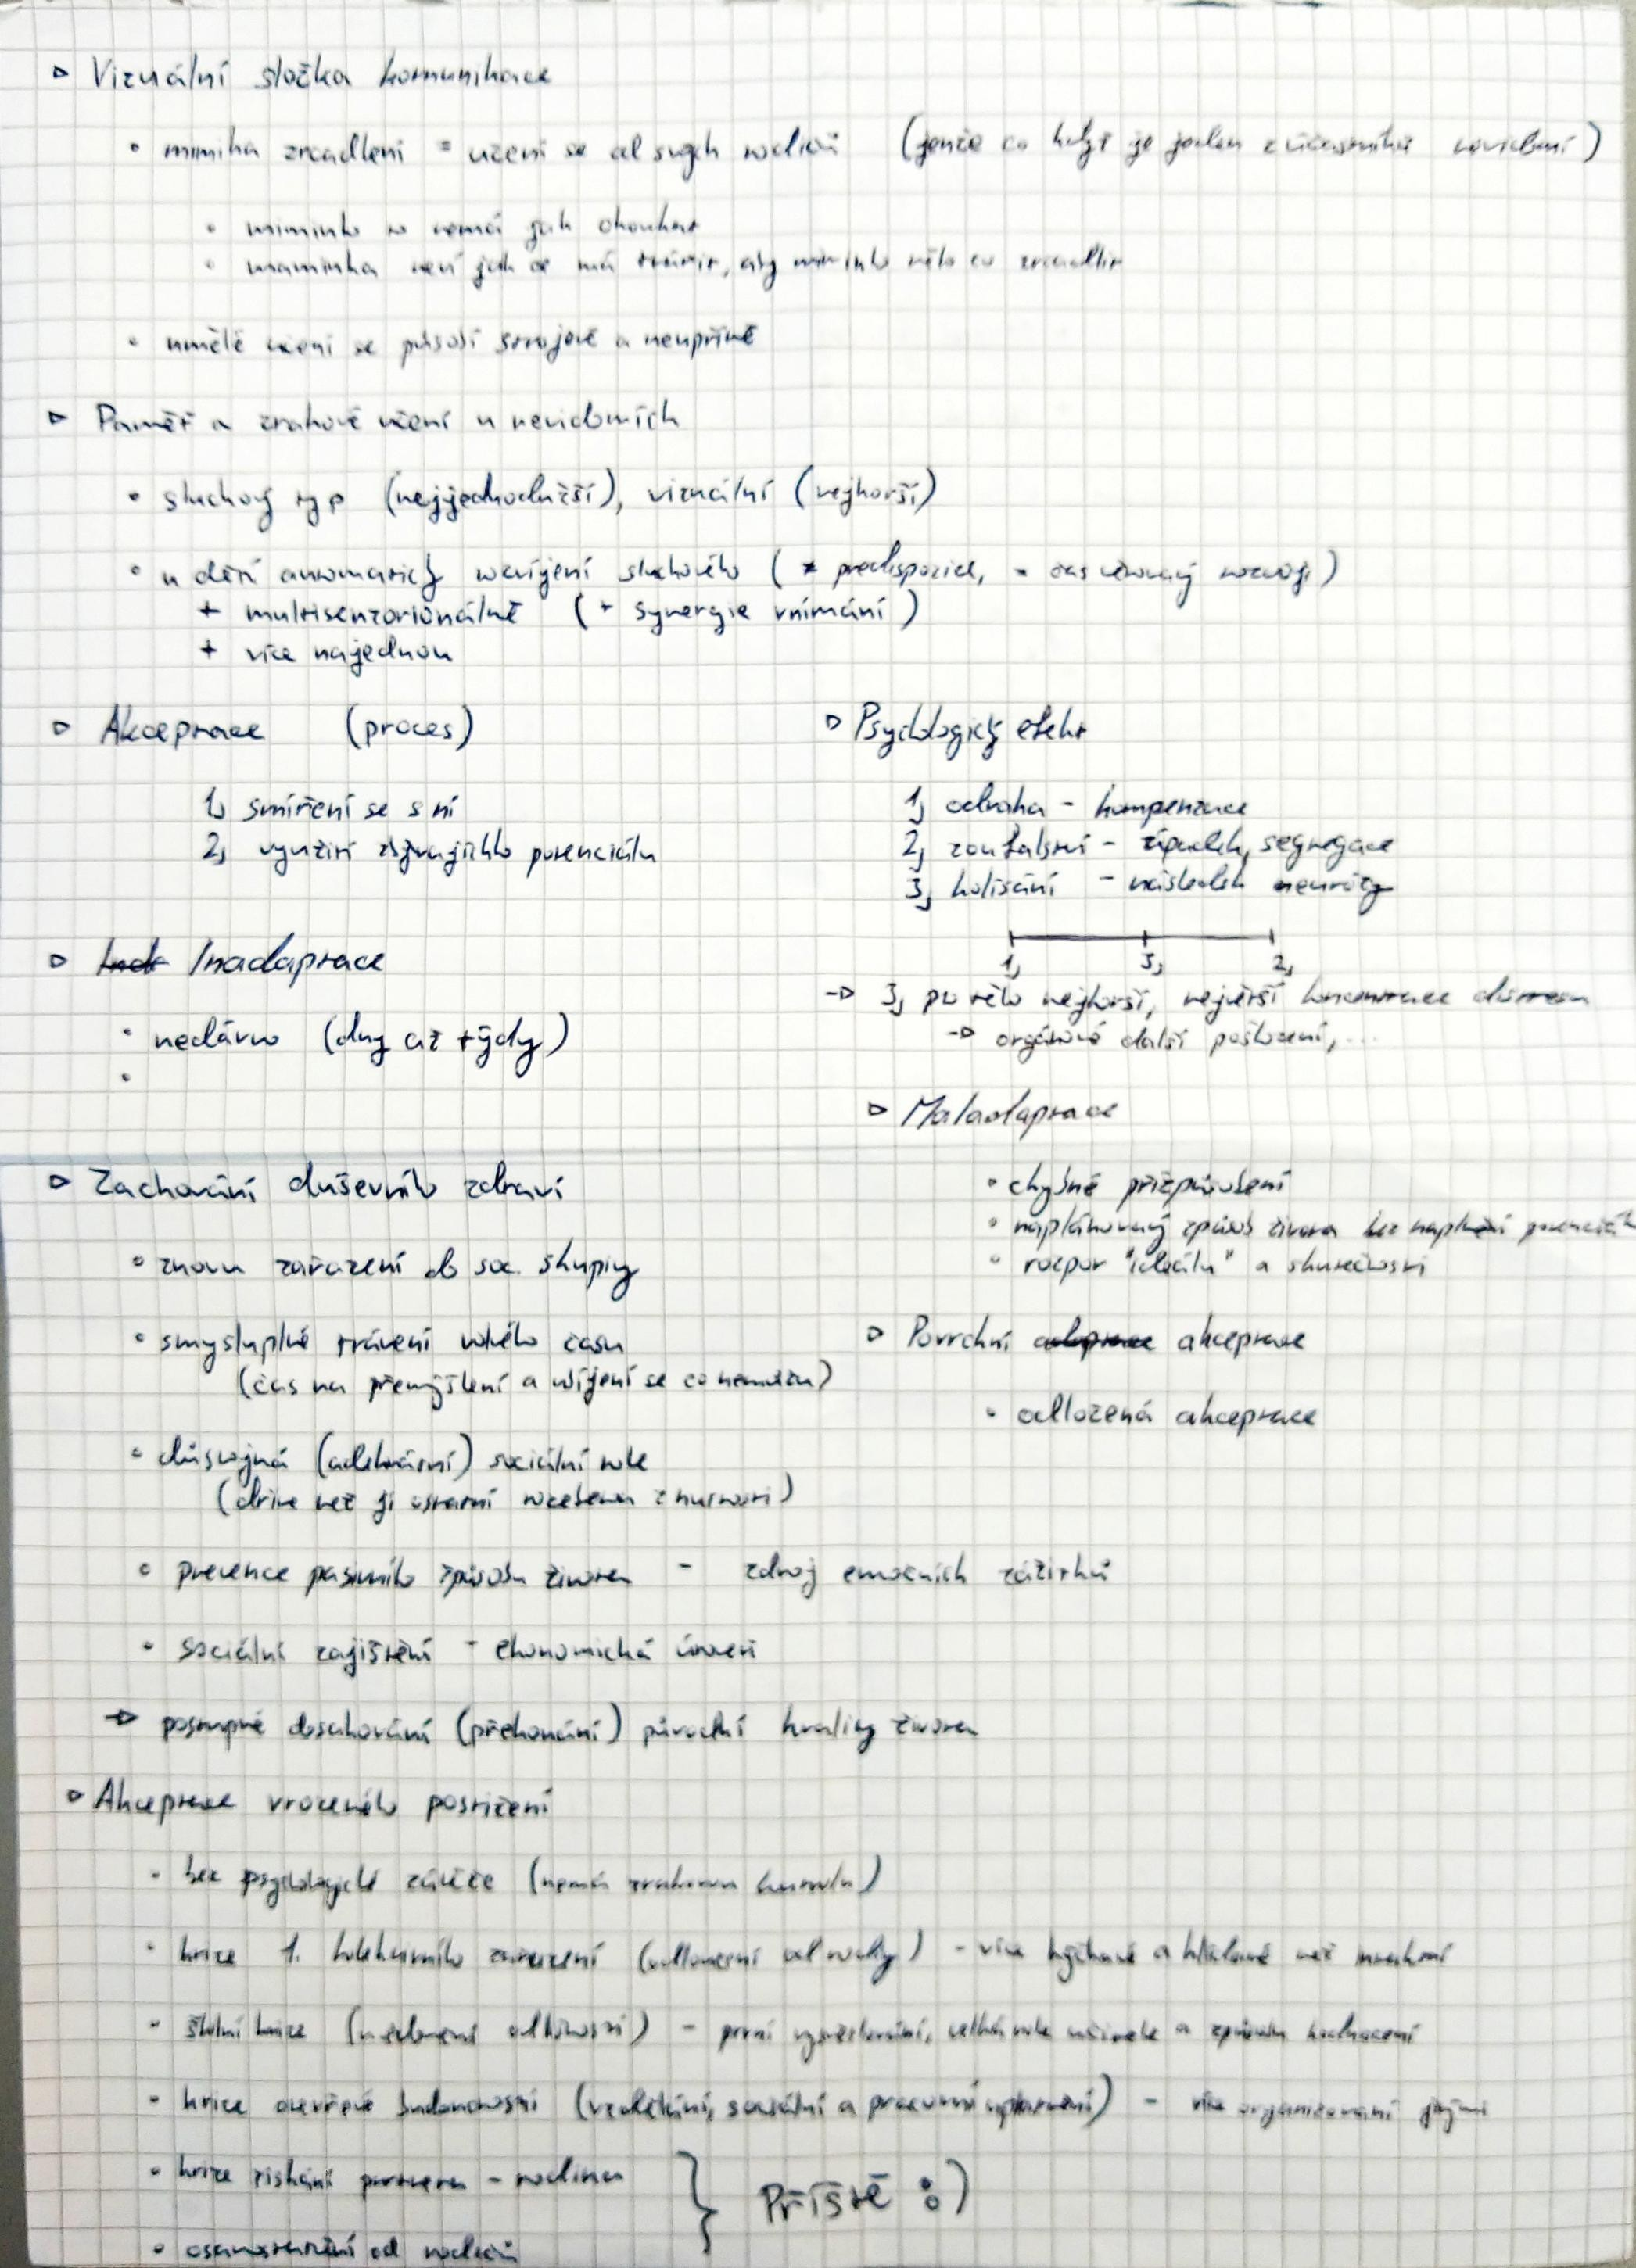 ▹ Vizuální složka komunikace
• mimika zrcadlení = učení se od svých rodičů (jenže co když je jeden z účastníků nevidomí)
• miminko to nemá jak okoukat
• maminka neví jak se má tvářit, aby miminko mělo co zrcadlit
• umělé učení se působí strojově a neupřímě
▹ Paměť a zrakové učení u nevidomích
• sluchový typ (nejjednodužší), vizuální (nejhorší)
• u dětí automatický rozvíjení sluchového (+ predispozice, - čas věnovaný rozvoji)
+ multisenzorionálně (+ synergie vnímání)
+ více najednou
▹ Akceptace (proces)
1, smíření se s ní
2, využití zbývajícího potenciálu
▹ Inadaptace
• nedávno (dny až týdy)
•
▹ Psychologický efekt
1, odvaha - kompenzace
2, zoufalství - úpadek, segregace
3, kolísání - následek neurózy
1, 3, 2,
→ 3, pro tělo nejhorší, největší koncentrace distresu
→ orgánové další poškození, ...
▹ Maladaptace
• chybné přizpůsobení
• naplánovaný způsob života bez naplnění potenciálu
• rozpor "ideálu" a skutečnosti
▹ Povrchní akceptace
• odložená akceptace
▹ Zachování duševního zdraví
• znovu zařazení do soc. skupiny
• smysluplné trávení volného času
(čas na přemýšlení a užíjení se co nemůžu)
• důstojná (adekvátní) sociální role
(dříve než ji ostatní vozeben z nutnosti)
• prevence pasivního způsobu života - zdroj emočních zážitků
• sociální zajištění - ekonomická úroveň
→ postupné dosahování (překonání) původní kvality života
▹ Akceptace vrozeného postižení
• bez psychologické zátěže (nemá zrakovou kontrolu)
• krize 1. kolektivního zařazení (odloučení od rodiny) - více hýčkané a hlídané než intaktní
• školní krize (uvědomění odlišnosti) - první vysvětlování, velká role učitele a způsobu hodnocení
• krize otevřené budoucnosti (vzdělání, sociální a pracovní uplatnění) - vše organizovaní jinými
• krize získání partnera - rodina
• osamostatnění od rodičů
} Příště :)